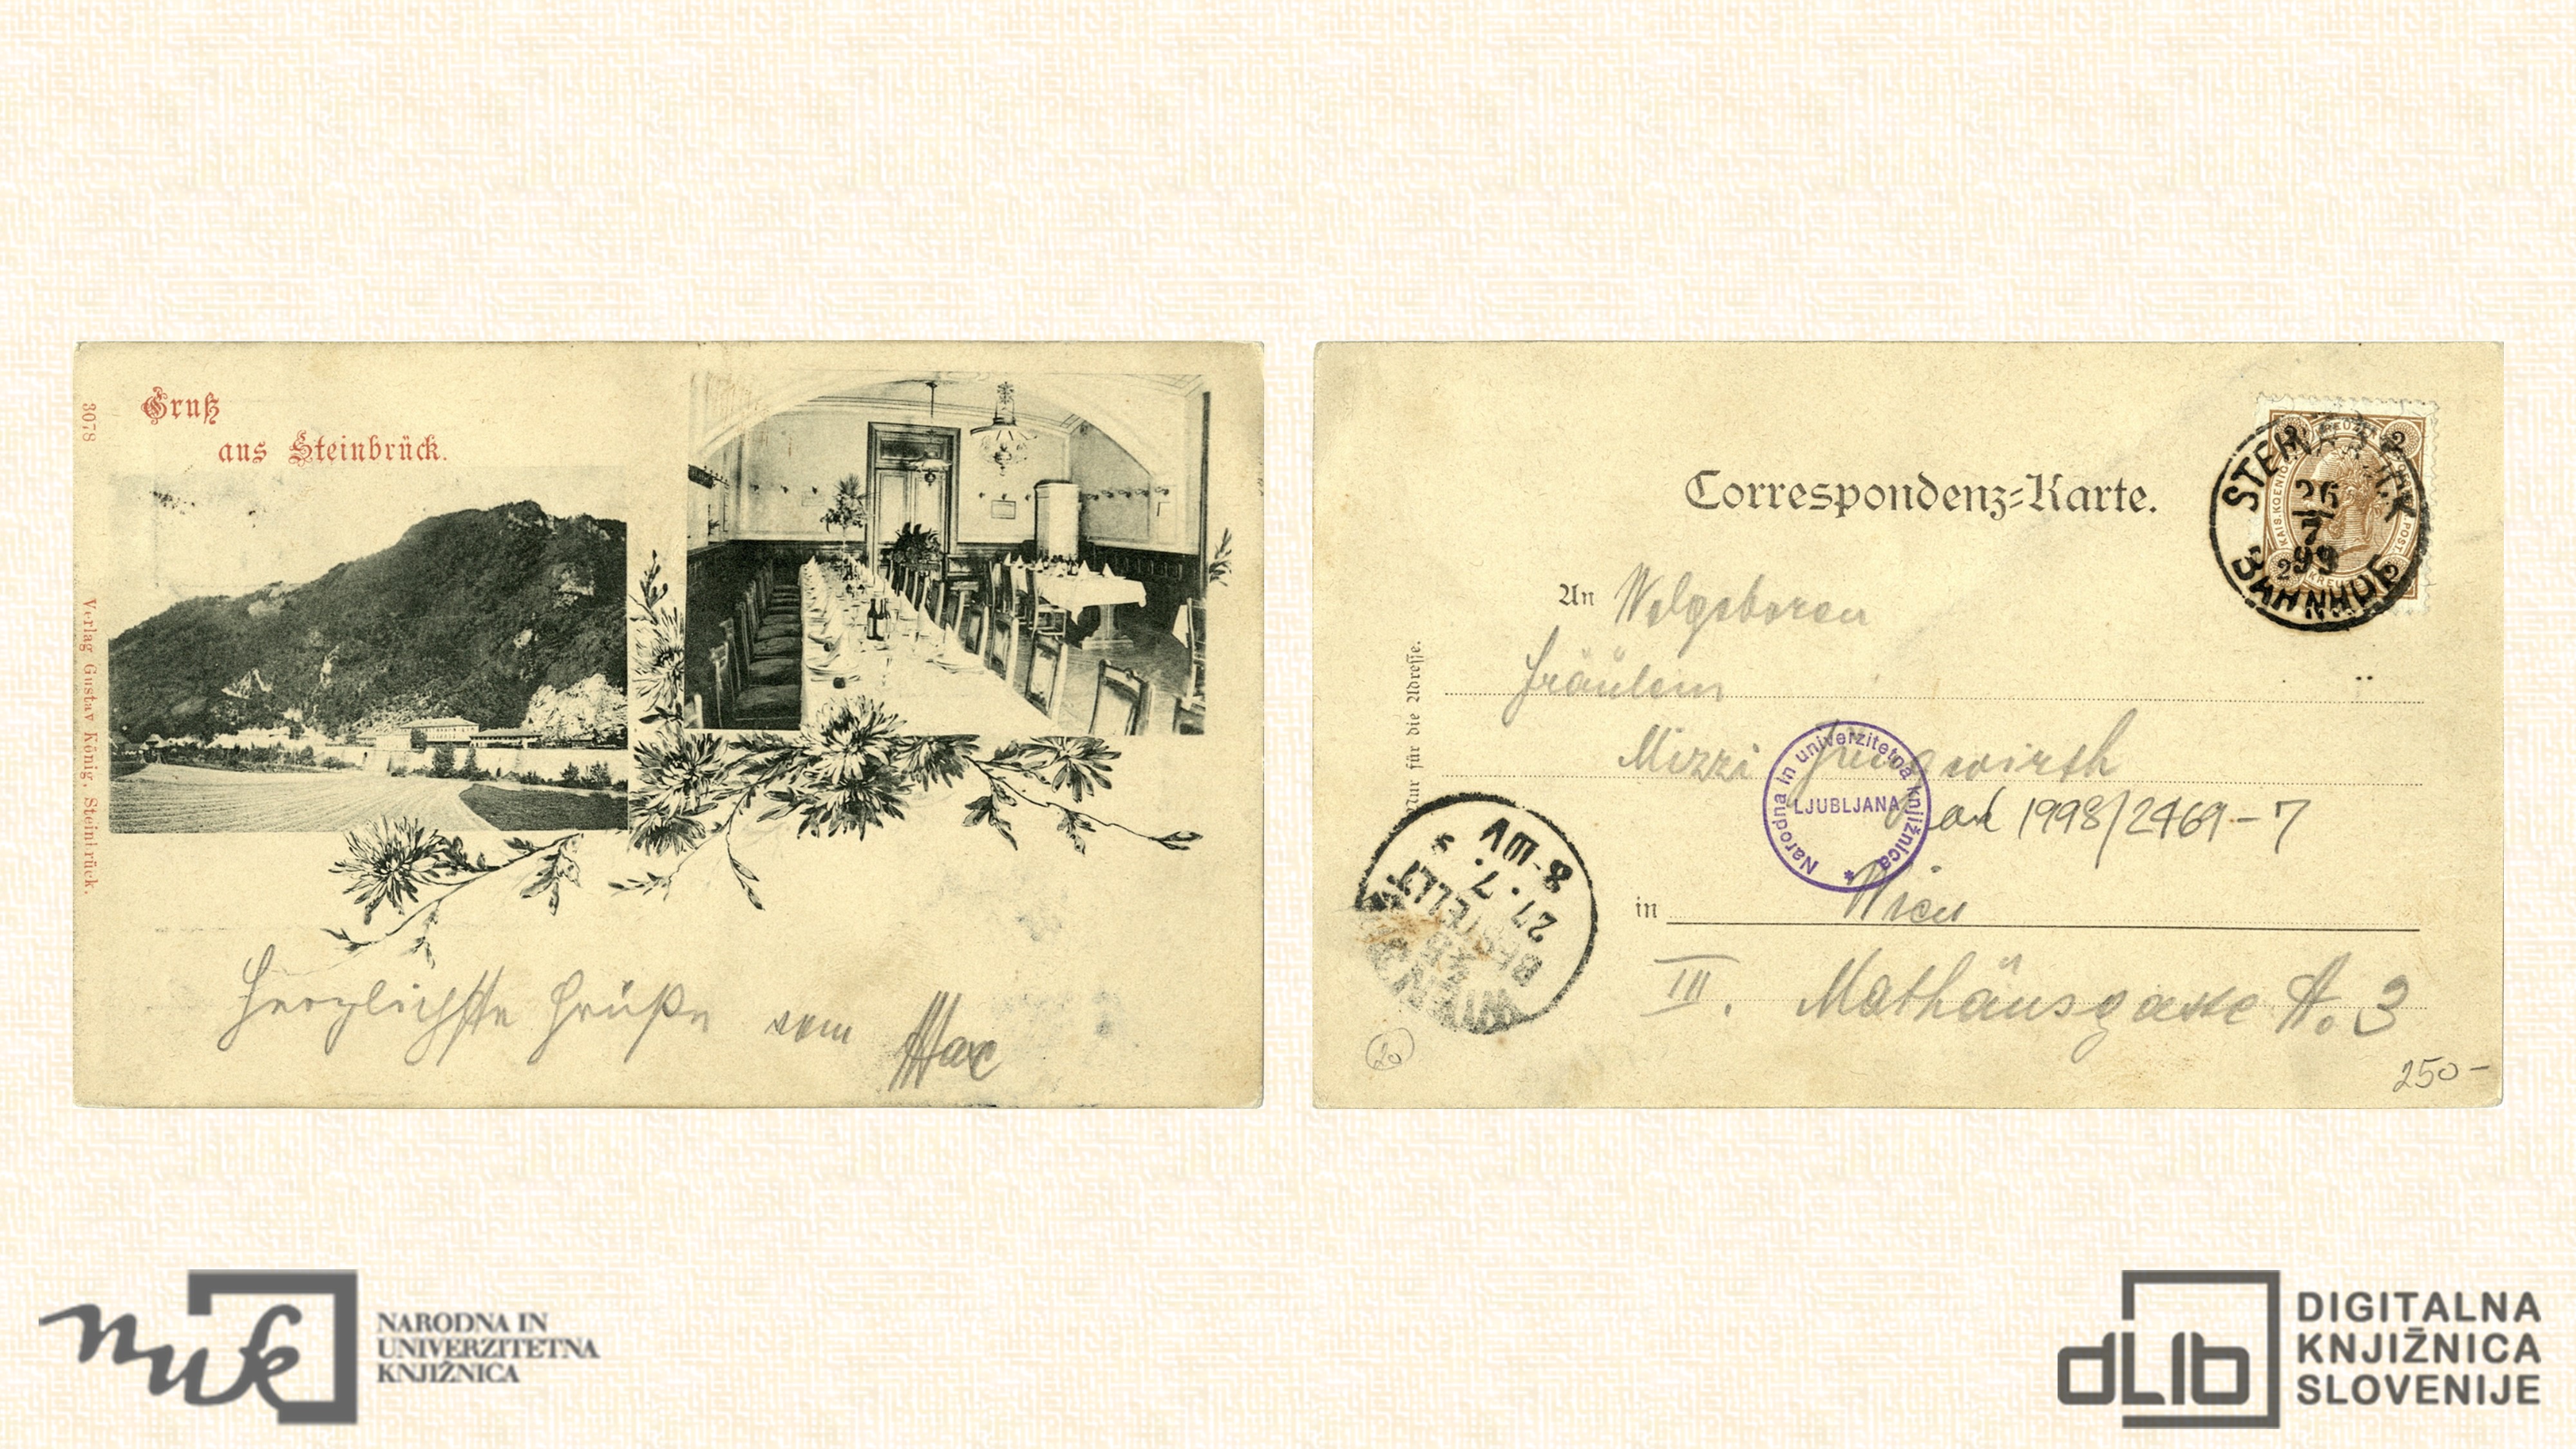 Gruß
aus Steinbrück.
3078
Verlag Gustav König, Steinbrück.
Herzlichste Grüße vom Max
Correspondenz-Karte.
2 KREUZER 2
KAIS. KOENIGL.
POST
26
7
99
BAHNHOF
An Wolgeboren
Fräulein
Mizzi Jungwirth
Nur für die Adresse.
Narodna in univerzitetna knjižnica
LJUBLJANA
1998/2469-7
in Wien
III. Mathäusgasse No. 3
WIEN
BESTELLT
27. 7.
8-
V
20
250-
nuk
NARODNA IN
UNIVERZITETNA
KNJIŽNICA
dLib
DIGITALNA
KNJIŽNICA
SLOVENIJE